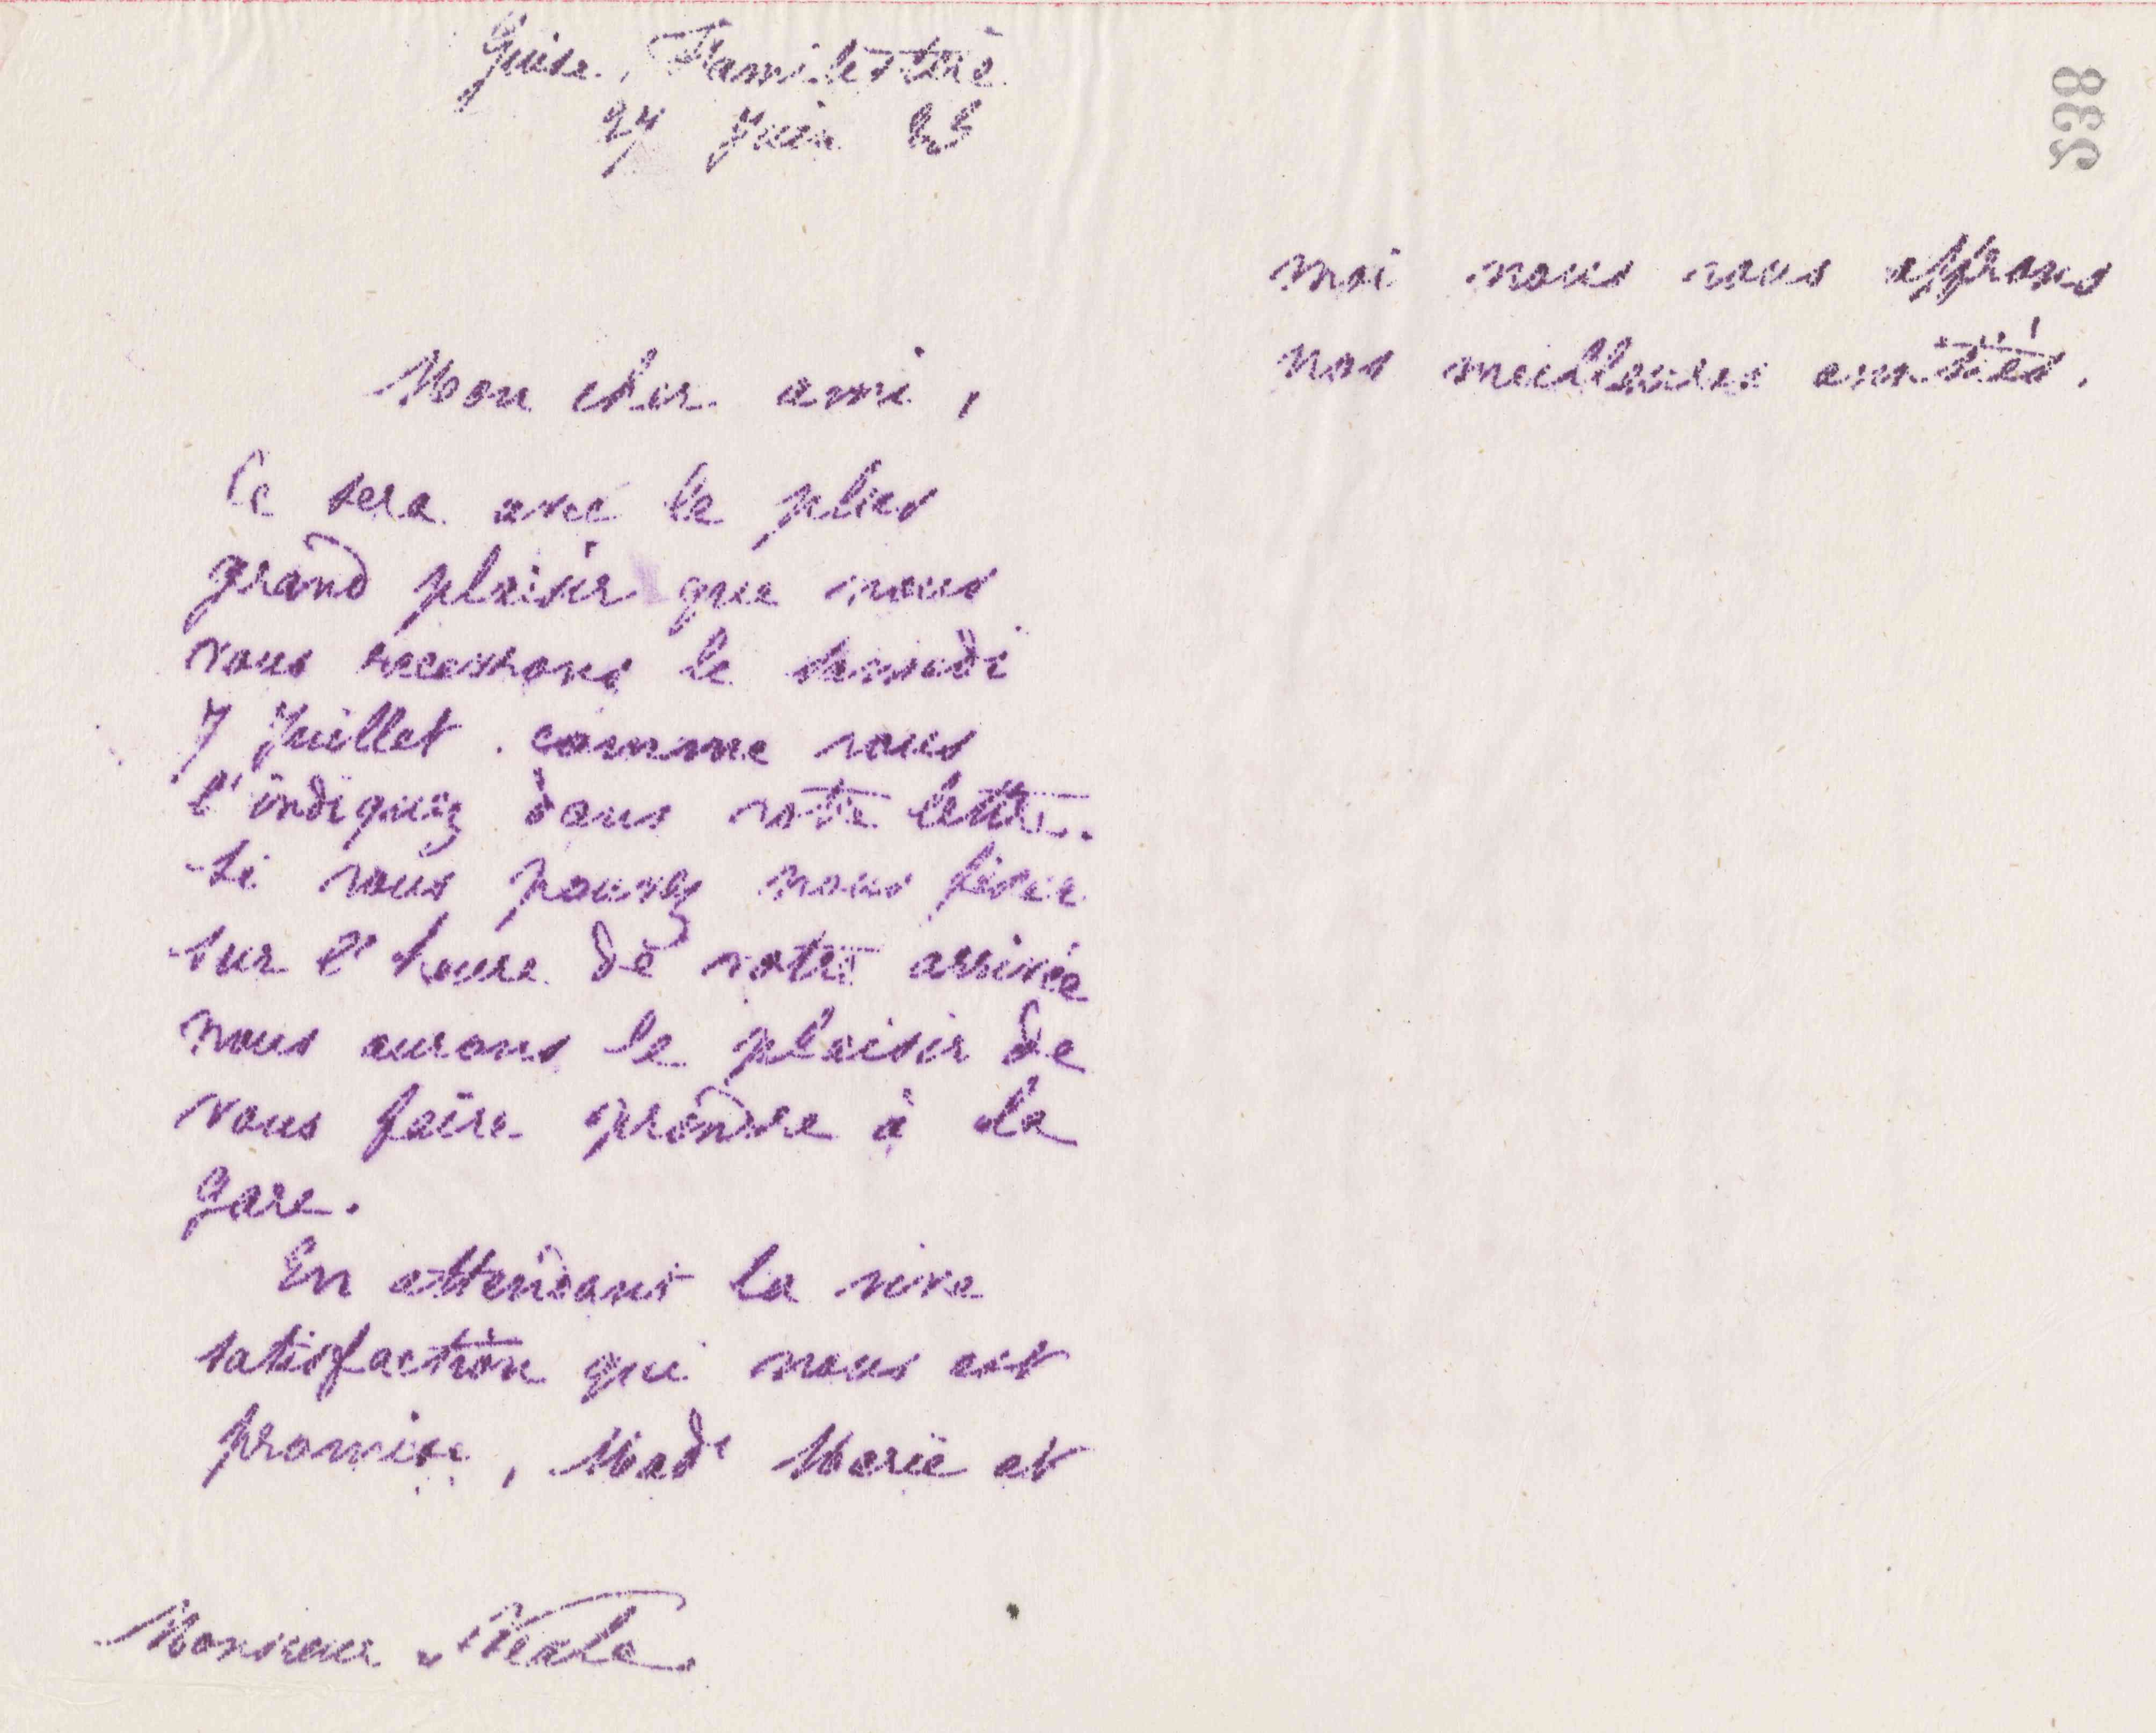 Guise, Familistère
24 Juin 83
Mon cher ami,
Ce sera avec le plus
grand plaisir que nous
vous recevrons le samedi
7 Juillet comme vous
l'indiquez dans votre lettre.
Si vous pouvez nous fixer
sur l'heure de votre arrivée
nous aurons le plaisir de
vous faire prendre à la
gare.
En attendant la vive
satisfaction qui nous est
promise, Made Marie et
Monsieur Neale
moi nous vous offrons
nos meilleures amitiés.
538